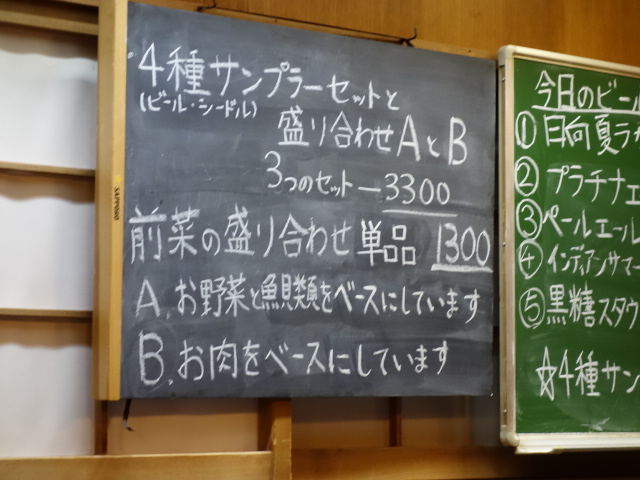 4種サンプラーセットと
(ビール・シードル)
盛り合わせAとB
3つのセット—3300
前菜の盛り合わせ 単品 1300
A. お野菜と魚貝類をベースにしています
B. お肉をベースにしています
SAPPORO
今日のビー
① 日向夏ラガ
② プラチナエ
③ ペールエール
④ インディアンサマー
⑤ 黒糖スタウ
☆4種サン